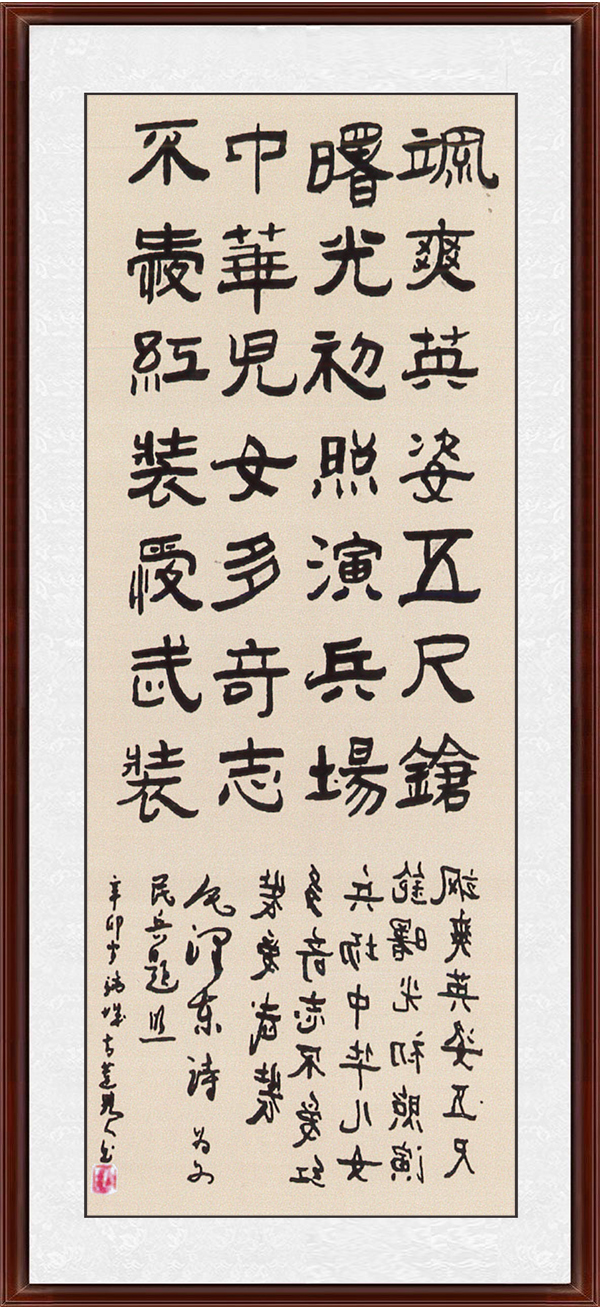 颯爽英姿五尺鎗
曙光初照演兵場
中華児女多奇志
不愛紅裝愛武裝
飒爽英姿五尺
鎗曙光初照演
兵场中华儿女
多奇志不爱红
装爱武装
毛泽东诗 为女
民兵题照
辛卯